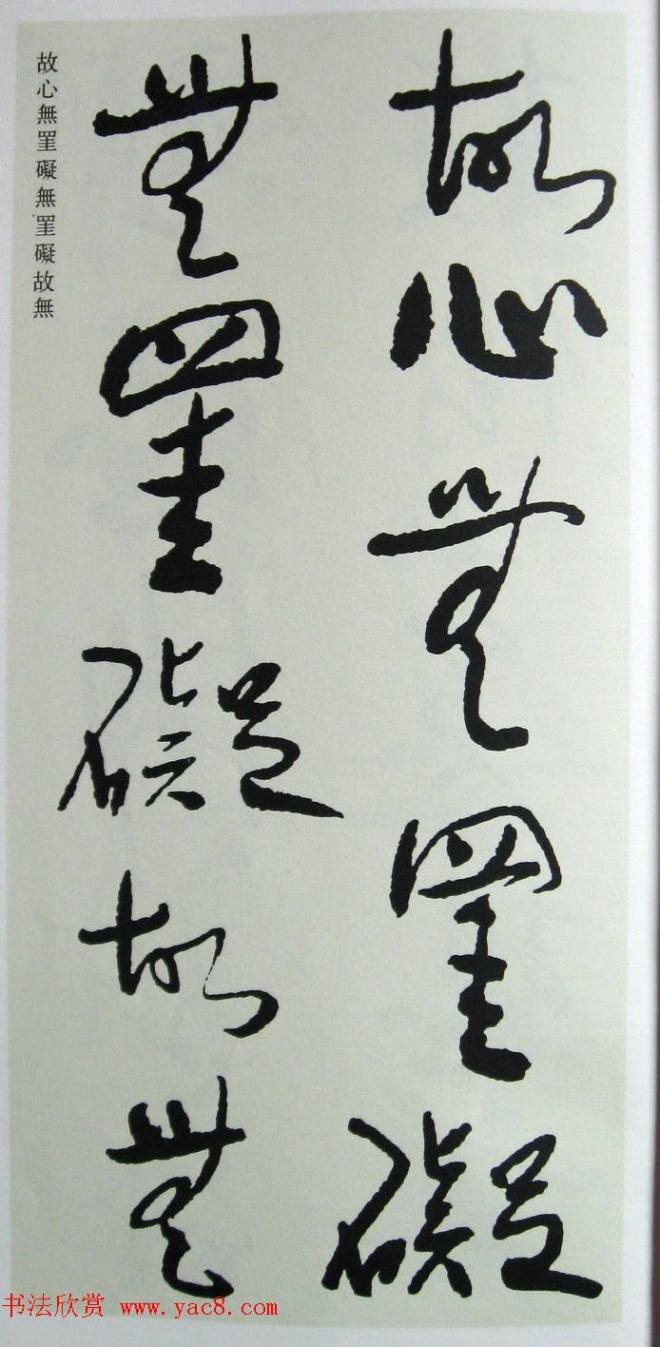 故心無罣礙
無罣礙故無
故心無罣礙無罣礙故無
书法欣赏 www.yac8.com